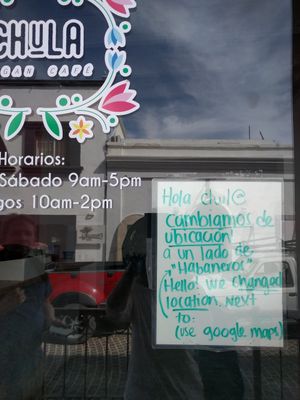 CHULA
GAN CAFÉ
Horarios:
Sábado 9am-5pm
gos 10am-2pm
Hola Chul@
Cambiamos de
ubicación
a un lado de
"Habaneros"
(Hello! We changed
location, Next
to:
(use google maps)